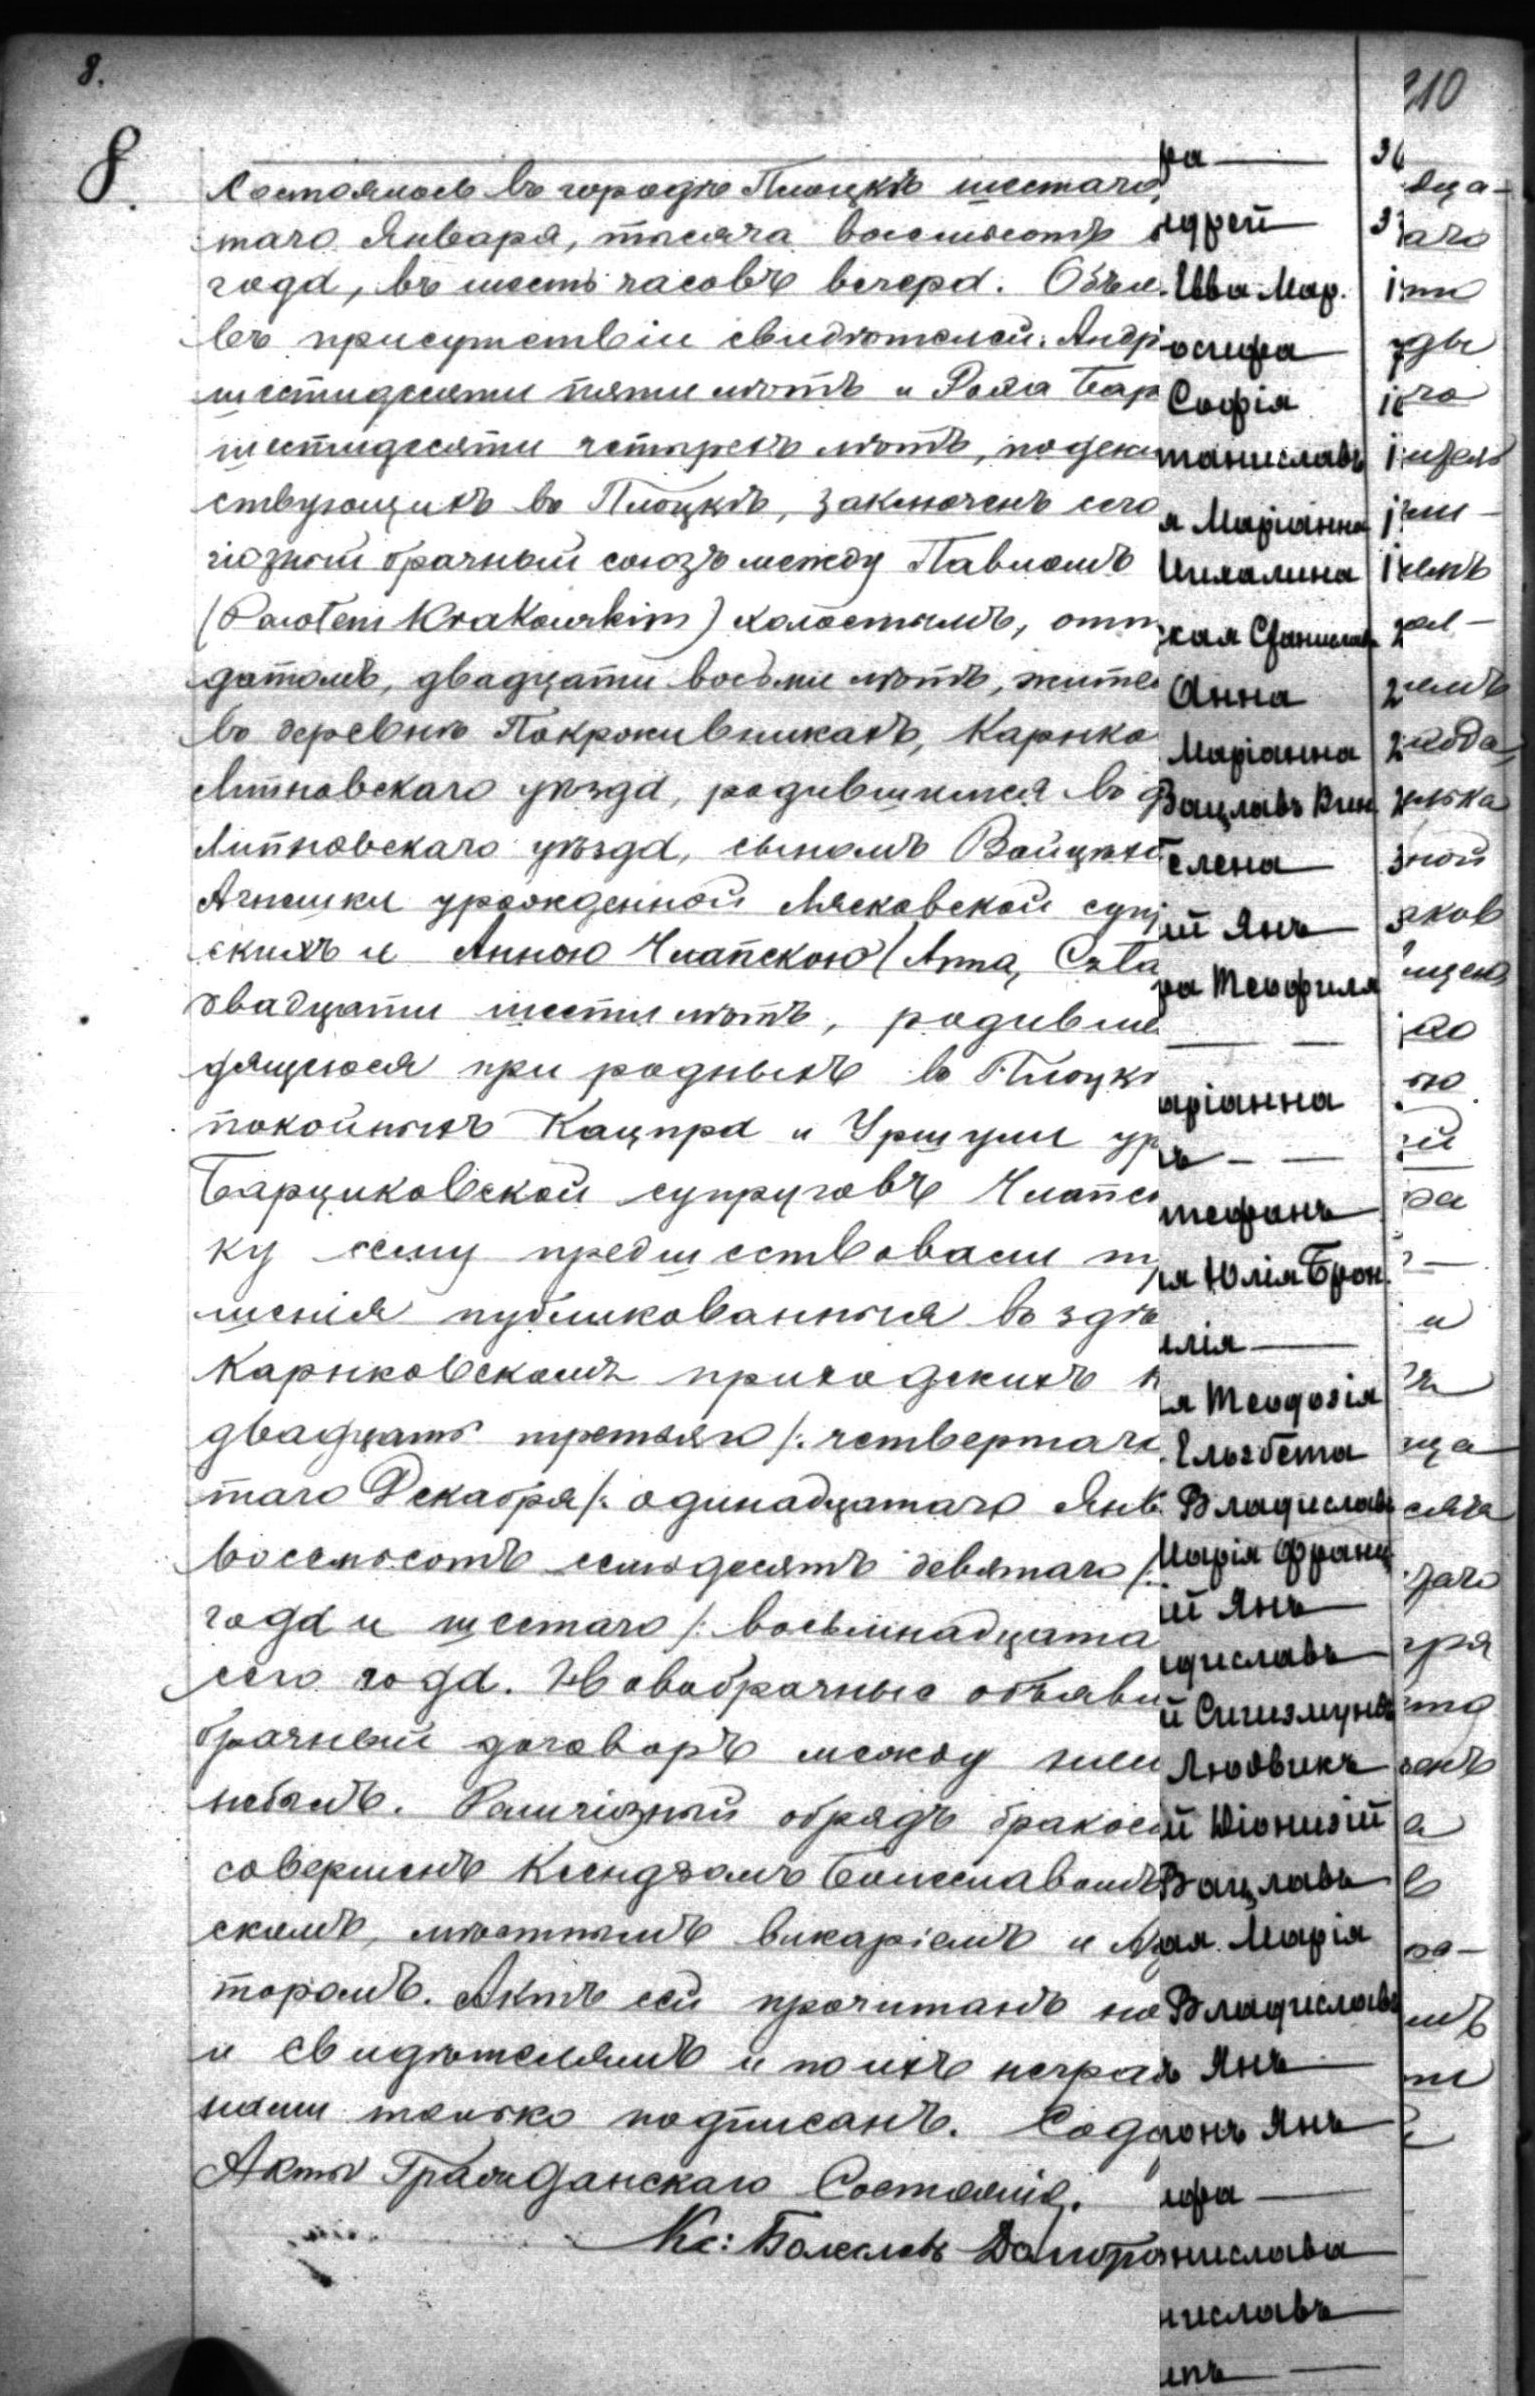 8.
210
8.
Состоялось въ городѣ Плоцкѣ шестаго
таго Января, тысяча восемьсотъ
года, въ шесть часовъ вечера. Объя
въ присутствіи свидѣтелей: Андр
шестидесяти пяти лѣтъ и Роха Бар
шестидесяти четырехъ лѣтъ, поденн
ствующихъ въ Плоцкѣ, заключенъ сего
гіозный брачный союзъ между Павломъ
(Pawłem Krakowskim) холостымъ, отп
датомъ, двадцати восьми лѣтъ, жите
въ деревнѣ Покрживникахъ, Карнко
Липновскаго уѣзда, родившимся въ д
Липновскаго уѣзда, сыномъ Войцѣх
Агнешки урожденной Лясковской суп
скихъ и Анною Члапскою (Anną Czła
двадцати шести лѣтъ, родивше
дящеюся при родныхъ въ Плоцк
покойныхъ Кацпра и Уршули ур
Барциковской супруговъ Члапс
ку сему предшествовали т
шенія публикованныя въ здѣ
Карнковскомъ приходскихъ к
двадцать третьяго /: четвертаго
таго Декабря /: одинадцатаго Янв
восемьсотъ семьдесятъ девятаго /:
года и шестаго /: восьмнадцата
сего года. Новобрачные объяви
брачный договоръ между ними
небылъ. Религіозный обрядъ бракос
совершенъ Ксендзомъ Болеславомъ
скимъ, мѣстнымъ викаріемъ и Ад
торомъ. Актъ сей прочитанъ но
и свидѣтелямъ и по ихъ неграм
нами только подписанъ. Сод
Акты Гражданскаго Состоянія.
Кс: Болеславъ Домбро
ра
ндрей
Ева Мар.
осифа
Софія
таниславъ
я Маріанна
Михалина
ская Станислав
Анна
Маріанна
Вацлавъ Вин
елена
ій Янъ
ра Теофиля
аріанна
ъ
тефанъ
ія Юлія Брон.
илія
я Теодозія
Ельзбета
Владиславъ
Марія Франц
ій Янъ
адиславъ
й Сигизмундъ
Людвикъ
ій Діонизій
Вацлавъ
ая Марія
Владиславъ
ъ Янъ
іонъ Янъ
ифа
ниславa
ниславъ
ипъ